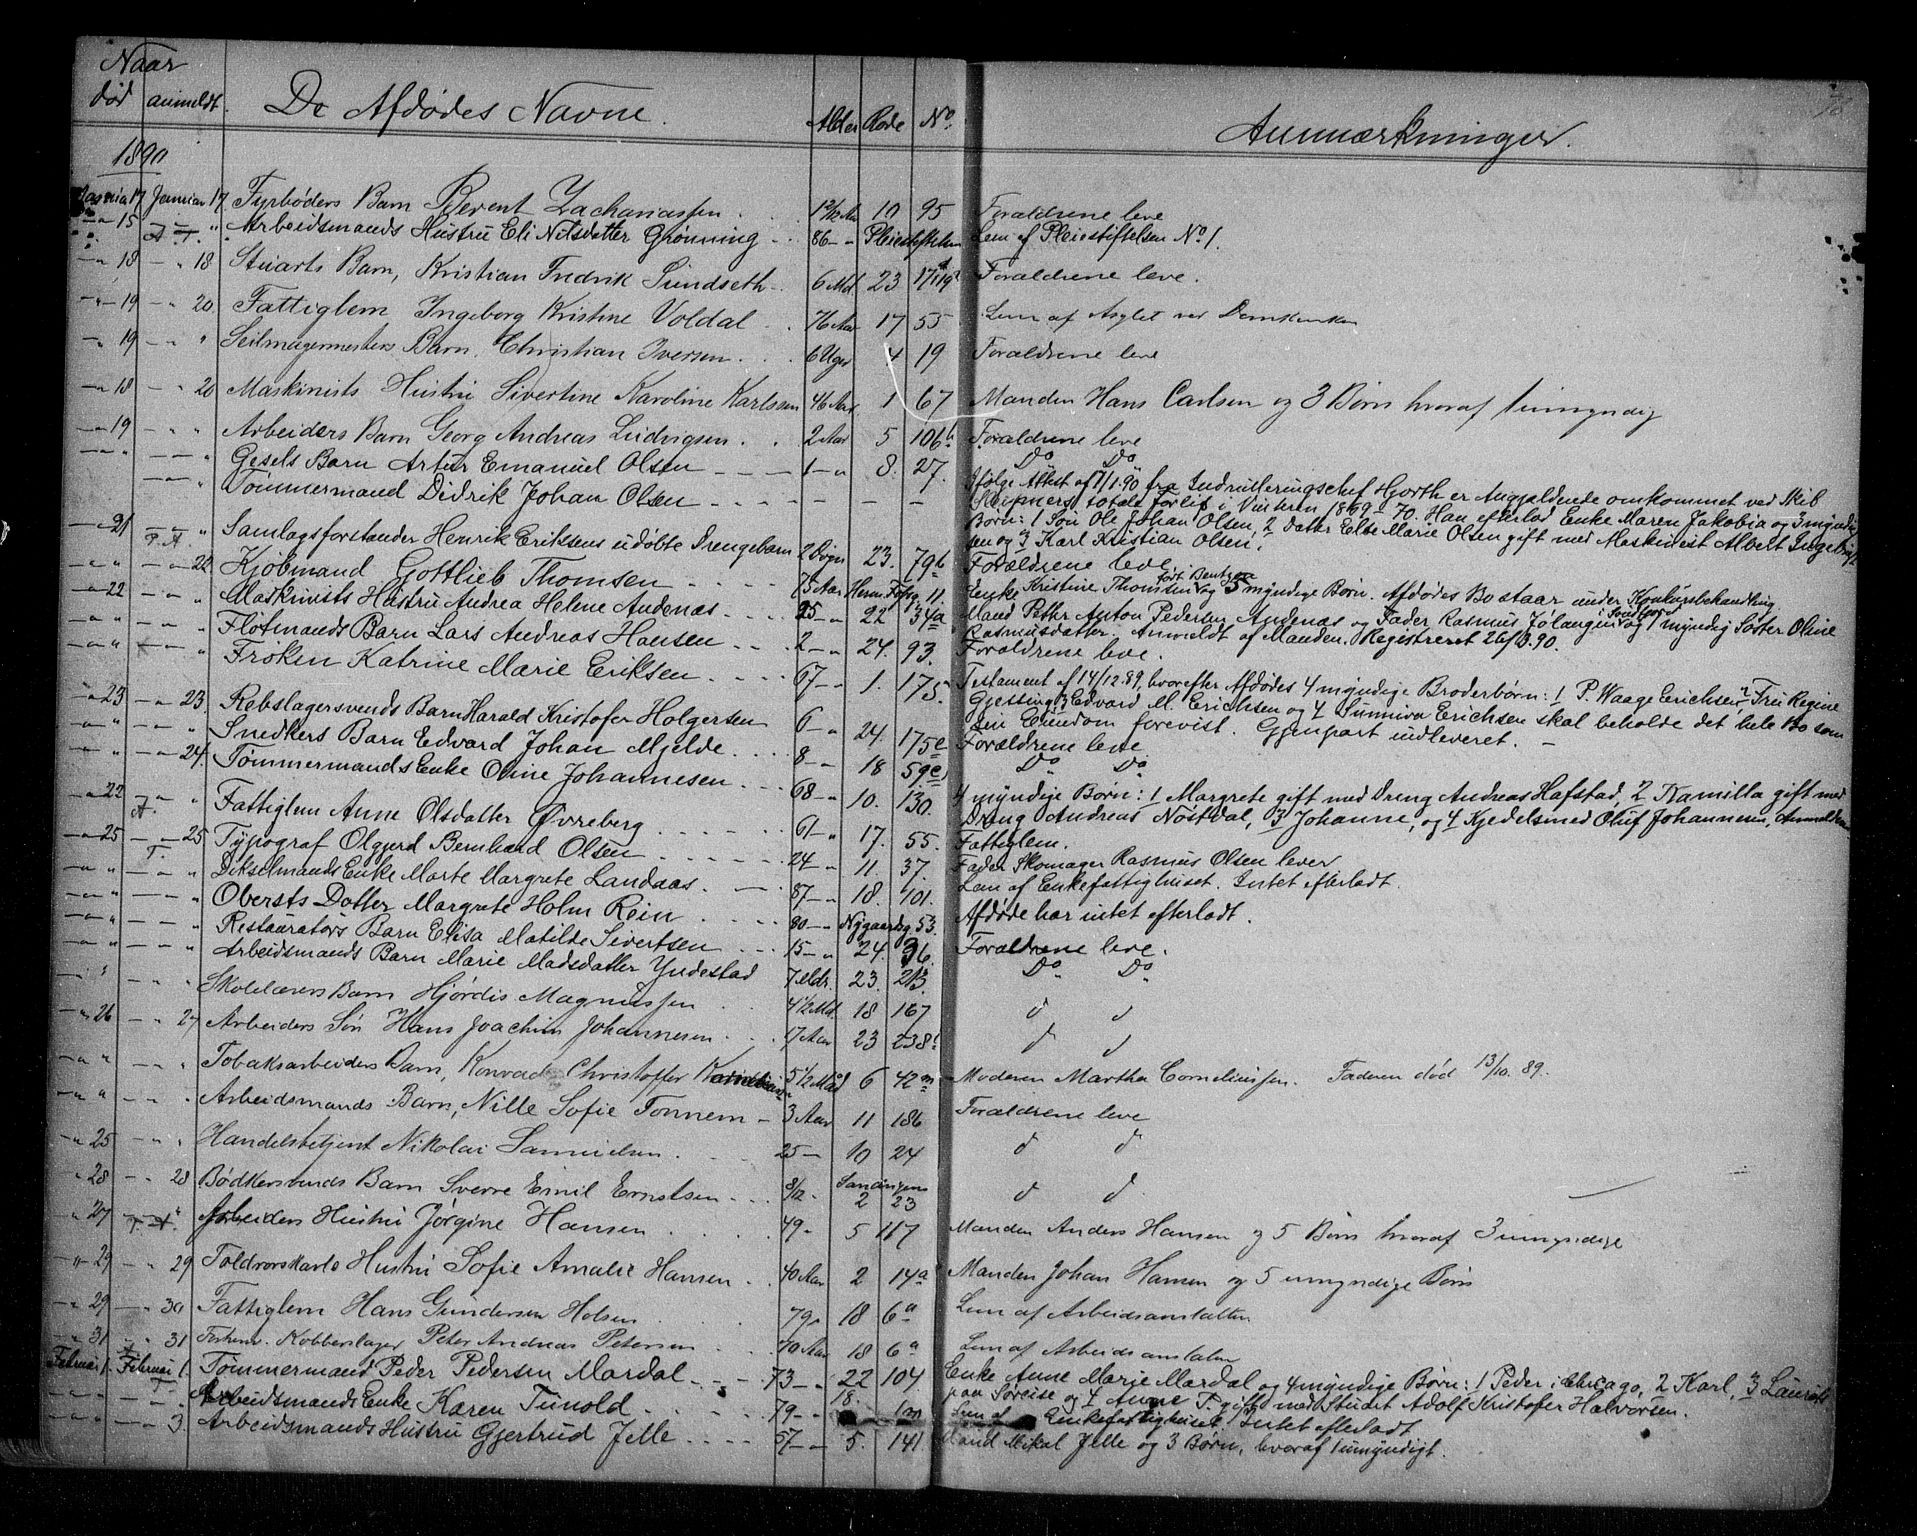 Naar
død anmeldt. De Afdødes Navne. Alder Rode No. Anmærkninger.
1890
17 Januar 17 Fyrbøders Barn Berent Zachariassen. 10 95 Forældrene leve
" 15 A. T. " Arbeidsmands Hustru Eli Nilsdatter Grønning 86 " Pleiestiftelsen Lem af Pleiestiftelsen No 1.
" 18 " 18 Stuarts Barn, Kristian Fredrik Sundseth 6 Md. 23 Forældrene leve.
" 19 " 20 Fattiglem Ingeborg Kristine Voldal 76 Aar 17 55 Lem af Asylet ved Domkirken
" 19 " " Seilmagermesters Barn, Christian Iversen. 6 Uger 4 19 Forældrene leve
" 18 " 20 Maskinists Hustru Sivertine Karoline Karlssen 46 Aar 1 67 Manden Hans Carlsen og 3 Børn hvoraf 1 umyndig
" 19 " " Arbeiders Barn Georg Andreas Ludvigsen. 2 Aar 5 106b Forældrene leve
" " " " Gesels Barn Artur Emanuel Olsen 1 " 8. 27. Do Do
" " Tømmermand Didrik Johan Olsen - - - Ifølge Attest af 17/1.90 fra Indrulleringschef Hjorth er Angjældende omkommet ved Skib
Sleipners totale Forlis i Vinteren 1869-70. Han efterlod Enke Maren Jakobia og 3 myndige
Børn: 1 Søn Ole Johan Olsen, 2 Datter Else Marie Olsen gift med Maskinist Albert
sen og 3 Karl Kristian Olsen.
" 21 T. A. " Samlagsforstander Henrik Eriksens udøbte Drengebarn 2 Døgn 23. 79b Forældrene leve
" " " 22 Kjøbmand Gottlieb Thomsen 75 Aar 11 Enke Kristine Thomsen født Bentzen og 5 myndige Børn. Afdødes Bo staar under Konkursbehandling.
" 22 " " Maskinists Hustru Andrea Helene Andenæs 25 " 22 34a Mand Petter Anton Pedersen Andenæs og Fader Rasmus i Søndfjord og 1 myndig Søster Oline
Rasmusdatter. Anmeldt af Manden. Registreret 26/3.90.
" " " " Fløtmands Barn Lars Andreas Hansen 2 " 24. 93. Forældrene leve.
" " " " Frøken Katrine Marie Eriksen 67 " 1. 175 Testament af 14/12.89, hvorefter Afdødes 4 myndige Broderbørn: 1 P. Waage Erichsen 2 Fru Regine
Gjessing 3 Edvard M. Erichsen og 4 Sunniva Erichsen skal beholde det hele Bo som
sin Eiendom forevist. Gjenpart indleveret.
" 23 " 23. Rebslagersvends Barn Harald Kristofer Holgersen 6 " 24. 175e Forældrene leve
" " " " Snedkers Barn Edvard Johan Mjelde 8 " 18 59e Do Do
" " " 24. Tømmermands Enke Oline Johannesen 68 " 10. 130. 4 myndige Børn: 1 Margrete gift med Dreng Andreas Hafstad, 2 Kamilla gift med
Dreng Andreas Nøstdal, 3 Johanne, og 4 Kjedelsmed Oluf Johannesen, Anmelder
" 22 A " Fattiglem Anne Olsdatter Øvreberg 61 " 17. 55. Fattiglem.
" 25 " 25 Typograf Olgjerd Bernhard Olsen 24 " 11. 37. Fader Skomager Rasmus Olsen lever
" " T. " Dikselmands Enke Marte Margrete Landaas 87 " 18. 101. Lem af Enkefattighuset. Intet efterladt.
" " " " Obersts Datter Margrete Holm Rein 80 " Nygaardsg. 53. Afdøde har intet efterladt.
" " " " Restauratørs Barn Elisa Matilde Sivertsen 15 " 24. 36. Forældrene leve.
" " " " Arbeidsmands Barn Marie Madsdatter Yndestad 7 Mdr. 23. 213. Do Do
" " " " Skolelærers Barn Hjørdis Magnussen 4 1/2 Md. 18 167 d d
" 26 " 27 Arbeiders Søn Hans Joachim Johannesen 17 Aar 23 238 d d
" " " " Tobaksarbeiders Barn, Konrad Christoffer 5 1/2 Md 6 42 Moderen Martha Corneliussen. Faderen død 13/10. 89.
" " " " Arbeidsmands Barn, Nille Sofie Tonnem 3 Aar 11 186 Forældrene leve
" 25 " " Handelsbetjent Nikolai Samuelsen 25 10 24 d d
" 28 " 28 Bødkersvends Barn Sverre Emil Ernstsen 8/12 2 23 d d
" 27 T. A. " Arbeiders Hustru Jørgine Hansen 49 5 167 Manden Anders Hansen og 5 Børn hvoraf 3 umyndige
" 29 " 29 Toldrorskarls Hustru Sofie Amalie Hansen 40 Aar 2 14a Manden Johan Hansen og 5 umyndige Børn
" 29 " 30 Fattiglem Hans Gundersen Holsen 79 18 6a Lem af Arbeidsanstalten
" 31 " 31 Forhenv. Kobberslager Peter Andreas Petersen 70 Aar 18 6a Lem af Arbeidsanstalten
Februar 1 Februar 1. Tømmermand Peder Pedersen Mardal 73 22 104 Enke Anne Marie Mardal og 4 myndige Børn: 1 Peder i Chicago, 2 Karl, 3 Laurits
paa Søreise og 4 Anne T. gift med Studst Adolf Kristofer Halvorsen.
" " T. " Arbeidsmands Enke Karen Tunold 79 " 18. Lem af Enkefattighuset Intet efterladt
" " " 3. Arbeidsmands Hustru Gjertrud Jelle 57 " 5. 141 Mand Mikal Jelle og 3 Børn, hvoraf 1 umyndigt.